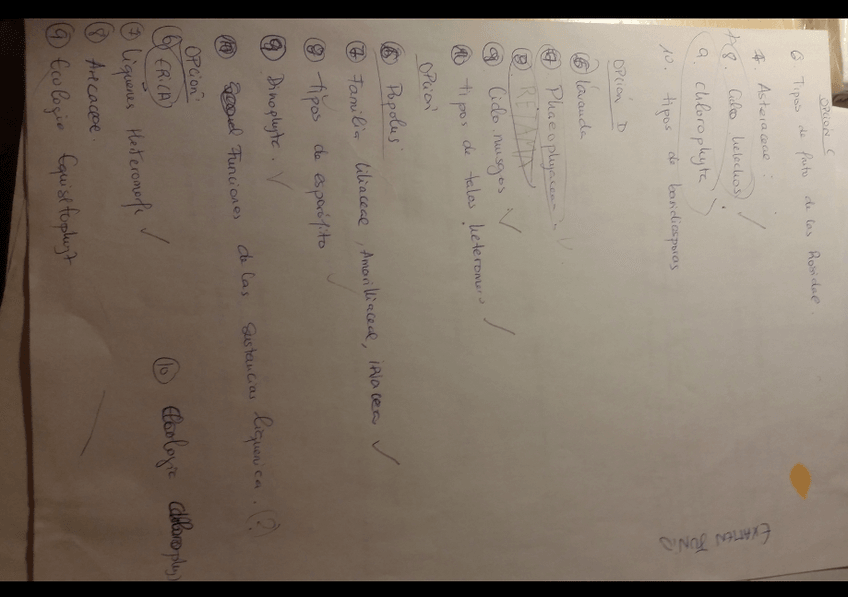 OPCION C
6 Tipos de fruto de las Rosidae.
7. Asteraceae.
8. Ciclo helechos
9. Chlorophyta
10. tipos de basidiosporas
OPCION D
6 Lavanda
7 Phaeophyceae
8 RETAMA
9 Ciclo musgos
10 tipos de talos heteromero
OPCION
6 Populus.
7 Familia liliaceae, Amarilliaceae, iridaceae
8 tipos de esporófito
9 Dinophyta.
10 Funciones de las sustancias liquenica. (?)
OPCION
6 ERICA
7 liquenes Heteromero
8 Arecaceae.
9 Ecologia Equisetophyta
10 Ecologia Chlorophy
EXAMEN JUNIO